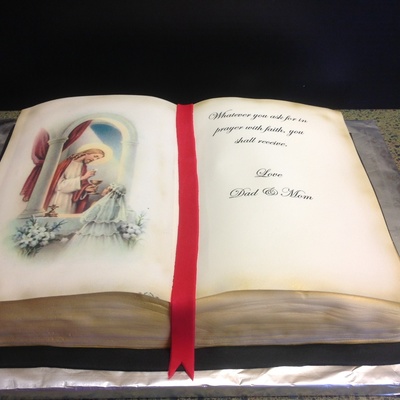 Whatever you ask for in
prayer with faith, you
shall receive.
Love
Dad & Mom